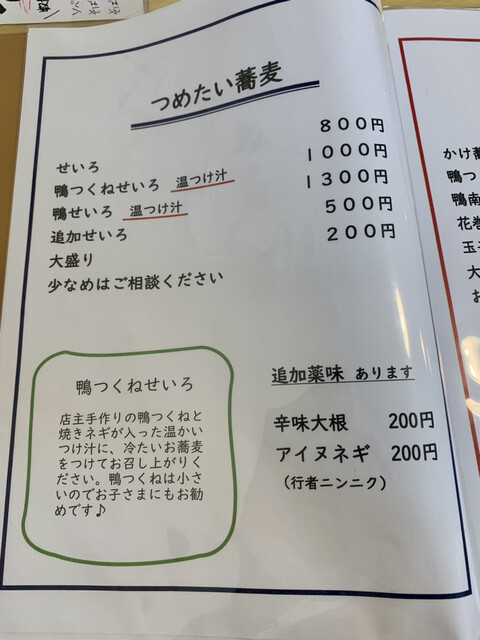 つめたい蕎麦
せいろ ８００円
鴨つくねせいろ 温つけ汁 １０００円
鴨せいろ 温つけ汁 １３００円
追加せいろ ５００円
大盛り ２００円
少なめはご相談ください
鴨つくねせいろ
店主手作りの鴨つくねと
焼きネギが入った温かい
つけ汁に、冷たいお蕎麦
をつけてお召し上がりく
ださい。鴨つくねは小さ
いのでお子さまにもお勧
めです♪
追加薬味 あります
辛味大根 200円
アイヌネギ 200円
（行者ニンニク）
かけ蕎
鴨つ
鴨南
花巻
玉子
大